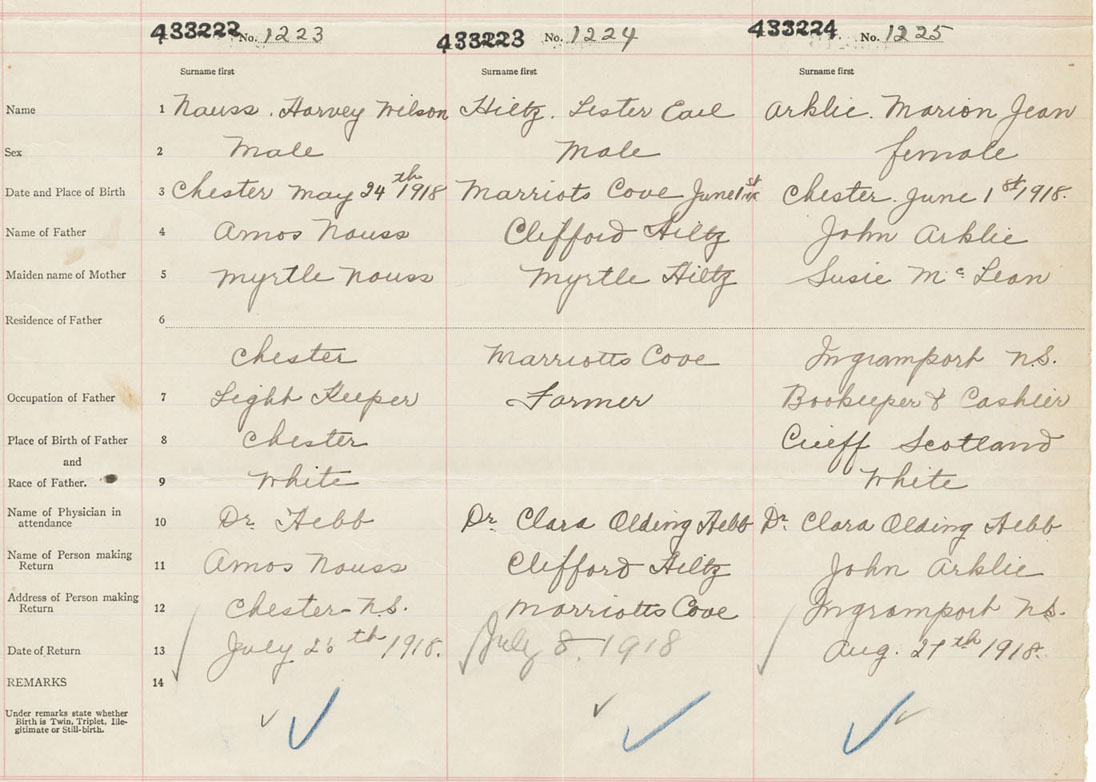 433222 No. 1223 433223 No. 1224 433224 No. 1225
Surname first Surname first Surname first
Name 1 Nauss. Harvey Wilson Hiltz. Lester Earl Arklie. Marion Jean
Sex 2 Male Male female
Date and Place of Birth 3 Chester May 24th 1918 Marriots Cove June 1st Chester. June 1st 1918.
Name of Father 4 Amos Nauss Clifford Hiltz John Arklie
Maiden name of Mother 5 Myrtle Nauss Myrtle Hiltz Susie Mc Lean
Residence of Father 6
Chester Marriotts Cove Ingramport N.S.
Occupation of Father 7 Light Keeper Farmer Bookeeper & Cashier
Place of Birth of Father 8 Chester Crieff Scotland
and
Race of Father. 9 White White
Name of Physician in
attendance 10 Dr. Hebb Dr. Clara Olding Hebb Dr. Clara Olding Hebb
Name of Person making
Return 11 Amos Nauss Clifford Hiltz John Arklie
Address of Person making
Return 12 Chester - N.S. Marriotts Cove Ingramport N.S.
Date of Return 13 July 26th 1918. July 8, 1918 Aug. 27th 1918.
REMARKS 14
Under remarks state whether
Birth is Twin, Triplet, Ille-
gitimate or Still-birth.